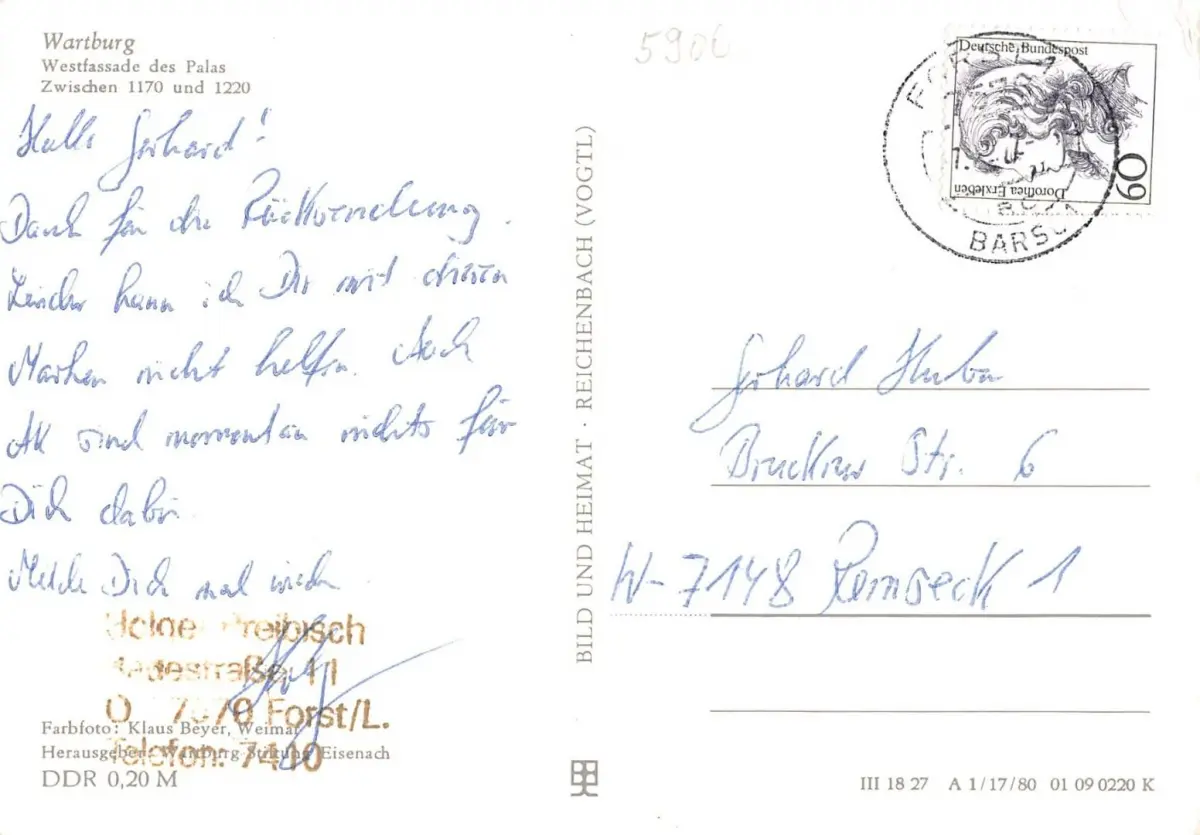 Wartburg
Westfassade des Palas
Zwischen 1170 und 1220
Hallo Gerhard!
Dank für die Rücksendung.
Leider kann ich Dir mit diesen
Marken nicht helfen. Auch
AK sind momentan nichts für
Dich dabei.
Melde Dich mal wieder
Holger Preibisch
straße 11
O 7570 Forst/L.
Farbfoto: Klaus Beyer, Weimar
Herausgeber: Wartburg Stiftung Eisenach
Telefon: 7400
DDR 0,20 M
BILD UND HEIMAT · REICHENBACH (VOGTL)
5906
Deutsche Bundespost
Dorothea Erxleben
60
Gerhard Huber
Bruckner Str. 6
W-7148 Remseck 1
III 18 27 A 1/17/80 01 09 0220 K